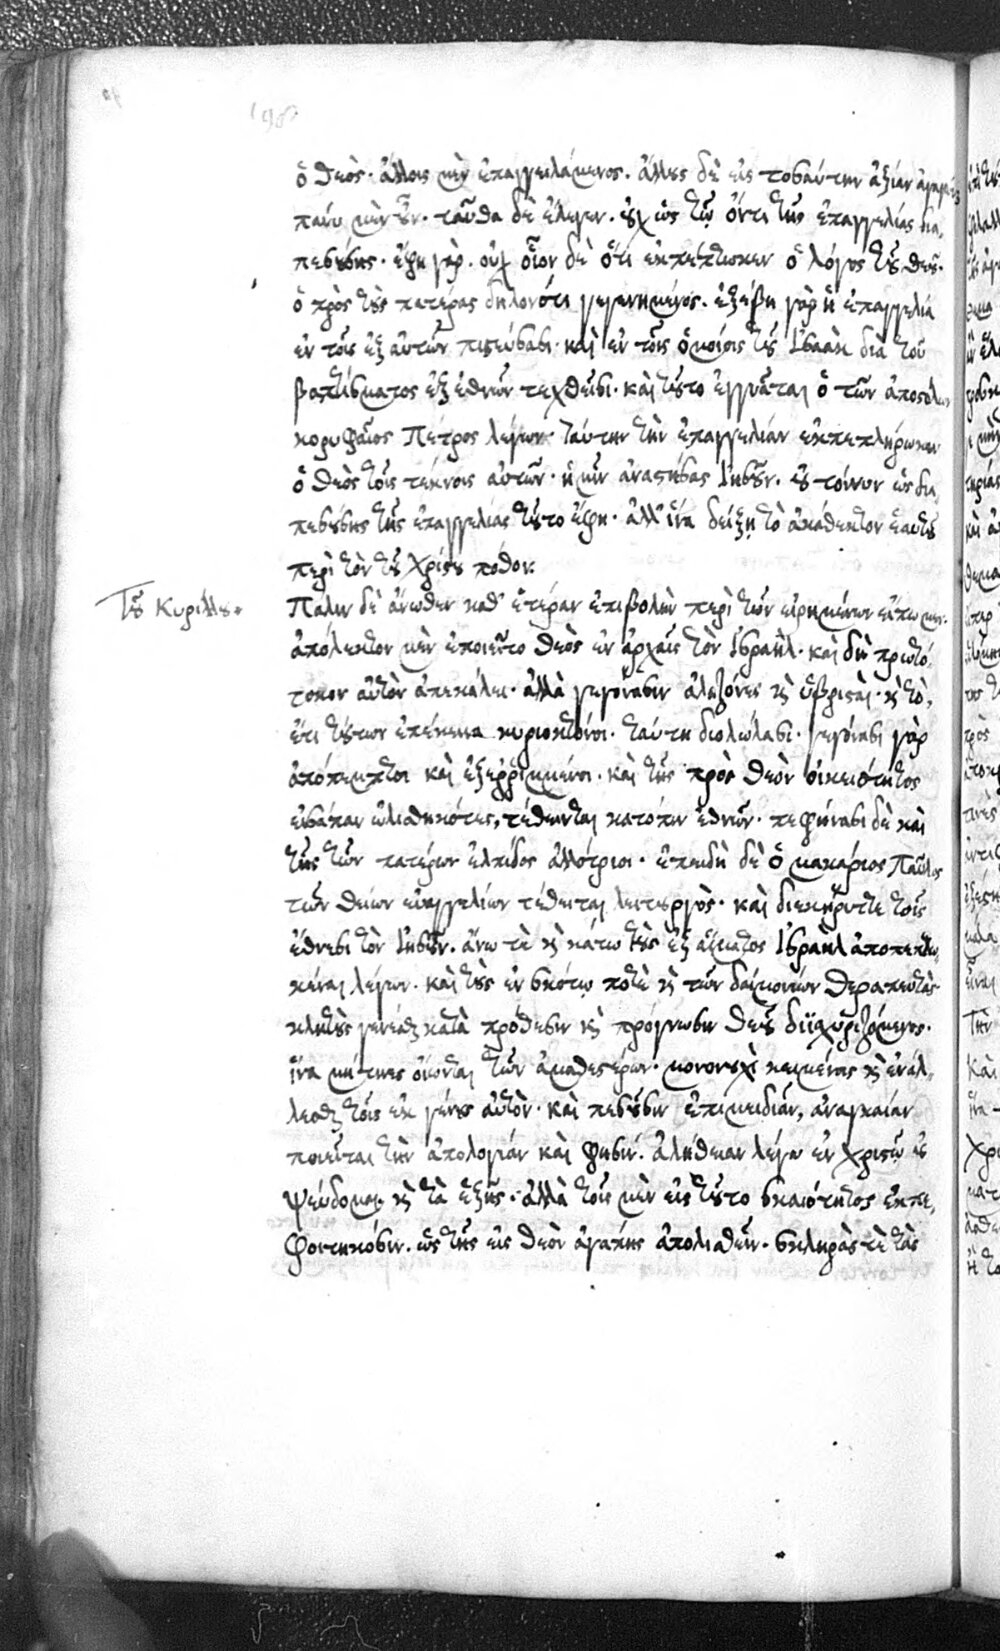 ὁ θεὸς· ἄλλοις μὲν ἐπαγγειλάμενος. ἄλλους δὲ εἰς τοσαύτην ἀξίαν ἀγαγὼν
πάνυ μὲν οὖν. ταῦθα δὲ ἔλεγεν. οὐχ ὡς τῷ ὄντι τῆς ἐπαγγελίας δια
πεσούσης· ἔφη γὰρ. οὐχ οἷον δὲ ὅτι ἐκπέπτωκεν ὁ λόγος τοῦ θεοῦ·
ὁ πρὸς τοὺς πατέρας δηλονότι γεγενημένος. ἐξέβη γὰρ ἡ ἐπαγγελία
ἐν τοῖς ἐξ αὐτῶν πιστεύσασι· καὶ ἐν τοῖς ὁμοίοις τοῦ Ἰσαὰκ διὰ τοῦ
βαπτίσματος ἐξ ἐθνῶν τεχθεῖσι· καὶ τοῦτο ἐγγυᾶται ὁ τῶν ἀποστόλων
κορυφαῖος Πέτρος λέγων· ταύτην τὴν ἐπαγγελίαν ἐκπεπλήρωκεν
ὁ θεὸς τοῖς τέκνοις αὐτῶν· ἡμῖν ἀναστήσας Ἰησοῦν. οὐ τοίνυν ὡς δια
πεσούσης τῆς ἐπαγγελίας τοῦτο ἔφη· ἀλλ' ἵνα δείξῃ τὸ ἀκάθεκτον ἑαυτοῦ
περὶ τὸν τοῦ Χριστοῦ πόθον.
Τοῦ Κυρίλλου.
Πάλιν δὲ ἄνωθεν καθ' ἑτέραν ἐπιβολὴν περὶ τῶν εἰρημένων εἴπωμεν.
ἀπόλεκτον μὲν ἐποιεῖτο θεὸς ἐν ἀρχαῖς τὸν Ἰσραήλ· καὶ δὴ πρωτό
τοκον αὐτὸν ἀπεκάλει· ἀλλὰ γεγόνασιν ἀλαζόνες καὶ ὑβρισταὶ· καὶ τὸ,
ἔτι τούτων ἐπέκεινα κυριοκτόνοι. ταύτῃ διολώλασι· γεγόνασι γὰρ
ἀπόπεμπτοι καὶ ἐξερριμμένοι· καὶ τῆς πρὸς θεὸν οἰκειότητος
εἰσάπαν ὠλισθηκότες, τέθεινται κατόπιν ἐθνῶν· πεφήνασι δὲ καὶ
τῆς τῶν πατέρων ἐλπίδος ἀλλότριοι· ἐπειδὴ δὲ ὁ μακάριος Παῦλος
τῶν θείων εὐαγγελίων τέθειται λειτουργὸς· καὶ διεκήρυττε τοῖς
ἔθνεσι τὸν Ἰησοῦν. ἄνω τὲ καὶ κάτω τοὺς ἐξ αἵματος Ἰσραὴλ ἀποπεπτω
κέναι λέγων· καὶ τοὺς ἐν σκότῳ ποτὲ καὶ τῶν δαιμονίων θεραπευτὰς
κλητοὺς γενέσθαι κατὰ πρόθεσιν καὶ πρόγνωσιν θεοῦ διϊσχυριζόμενος·
ἵνα μή τινες οἴονται τῶν ἀμαθεστέρων· μονονουχὶ κειμένοις καὶ ἐνάλ
λεσθαι τοῖς ἐκ γένους αὐτὸν· καὶ πεσοῦσιν ἐπιμειδιᾶν, ἀναγκαίαν
ποιεῖται τὴν ἀπολογίαν καὶ φησιν. ἀλήθειαν λέγω ἐν Χριστῷ οὐ
ψεύδομαι καὶ τὰ ἑξῆς· ἀλλὰ τοῖς μὲν εἰς τοῦτο σκαιότητος ἐκπε
φοιτηκόσιν. ὡς τῆς εἰς θεὸν ἀγάπης ἀπολισθεῖν. σκληρὰς τὲ τὰς